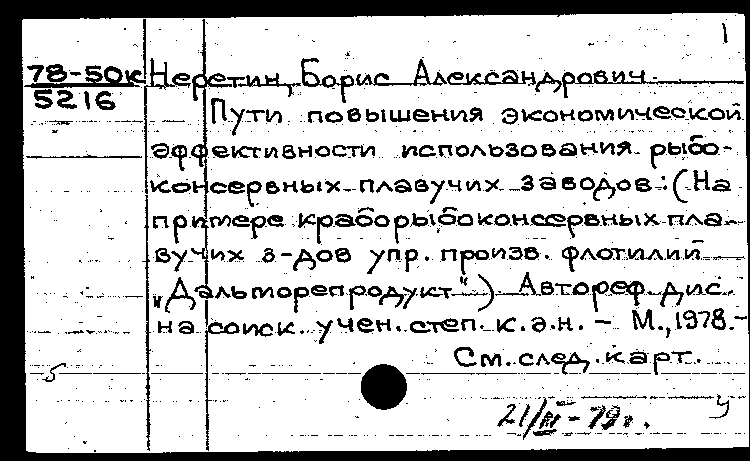 1
78-50к Неретин, Борис Александрович.
5216
Пути повышения экономической
эффективности использования рыбо-
консервных плавучих заводов: (На
примере краборыбоконсервных пла-
вучих з-дов упр. произв. флотилий
„Дальморепродукт“) Автореф. дис.
на соиск. учен. степ. к.э.н. – М., 1978.–
См. след. карт.
5
21/III-79г.
У